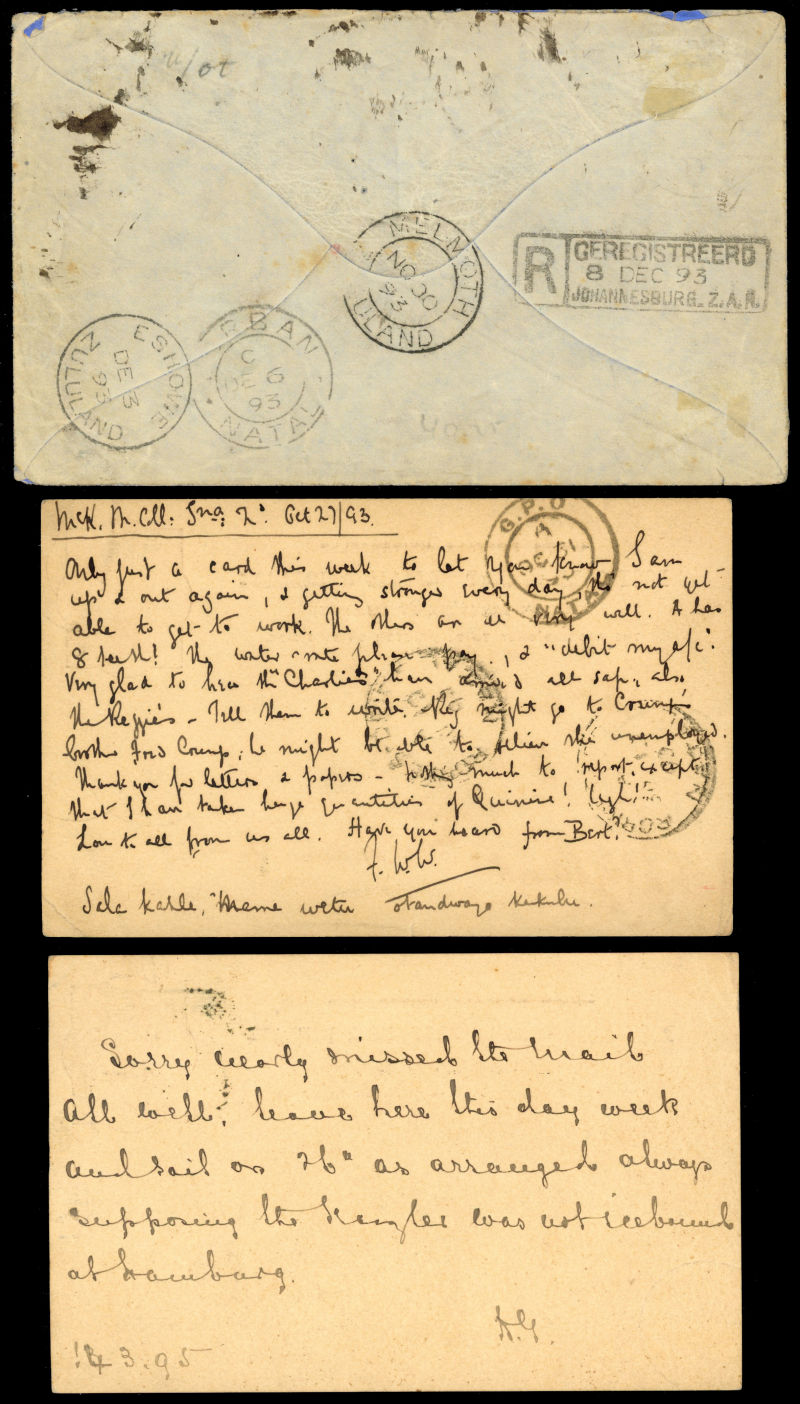 MELMOTH
NO 30
93
ULAND
R GEREGISTREERD
8 DEC 93
JOHANNESBURG. Z.A.R.
ESHOWE
DE 3
93
ZULULAND
RBAN
C
DE 6
93
NATAL
Oct 27/93.
G.P.O
A
NATAL
Only just a card this week to let you know I am
up & out again, & getting stronger every day, tho' not yet
able to get to work. The others are all very well. A has
8 teeth! The water-rate please pay, & "debit my a/c".
Very glad to hear the "Charlies" have arrived all safe, also
the Reggie's - Tell them to write. Reg might go to Crump's
brother Fred Crump; he might be able to relieve the unemployed.
Thank you for letters & papers - nothing much to report, except
that I have taken huge quantities of Quinine! Ugh!
Love to all from us all. Have you heard from Bert?
F. W. W.
Sala kahle,
Sorry nearly missed the mail
All well, leave here this day week
and sail on 26" as arranged always
supposing the Kanzler was not icebound
at Hamburg.
A.G.
14 3.95